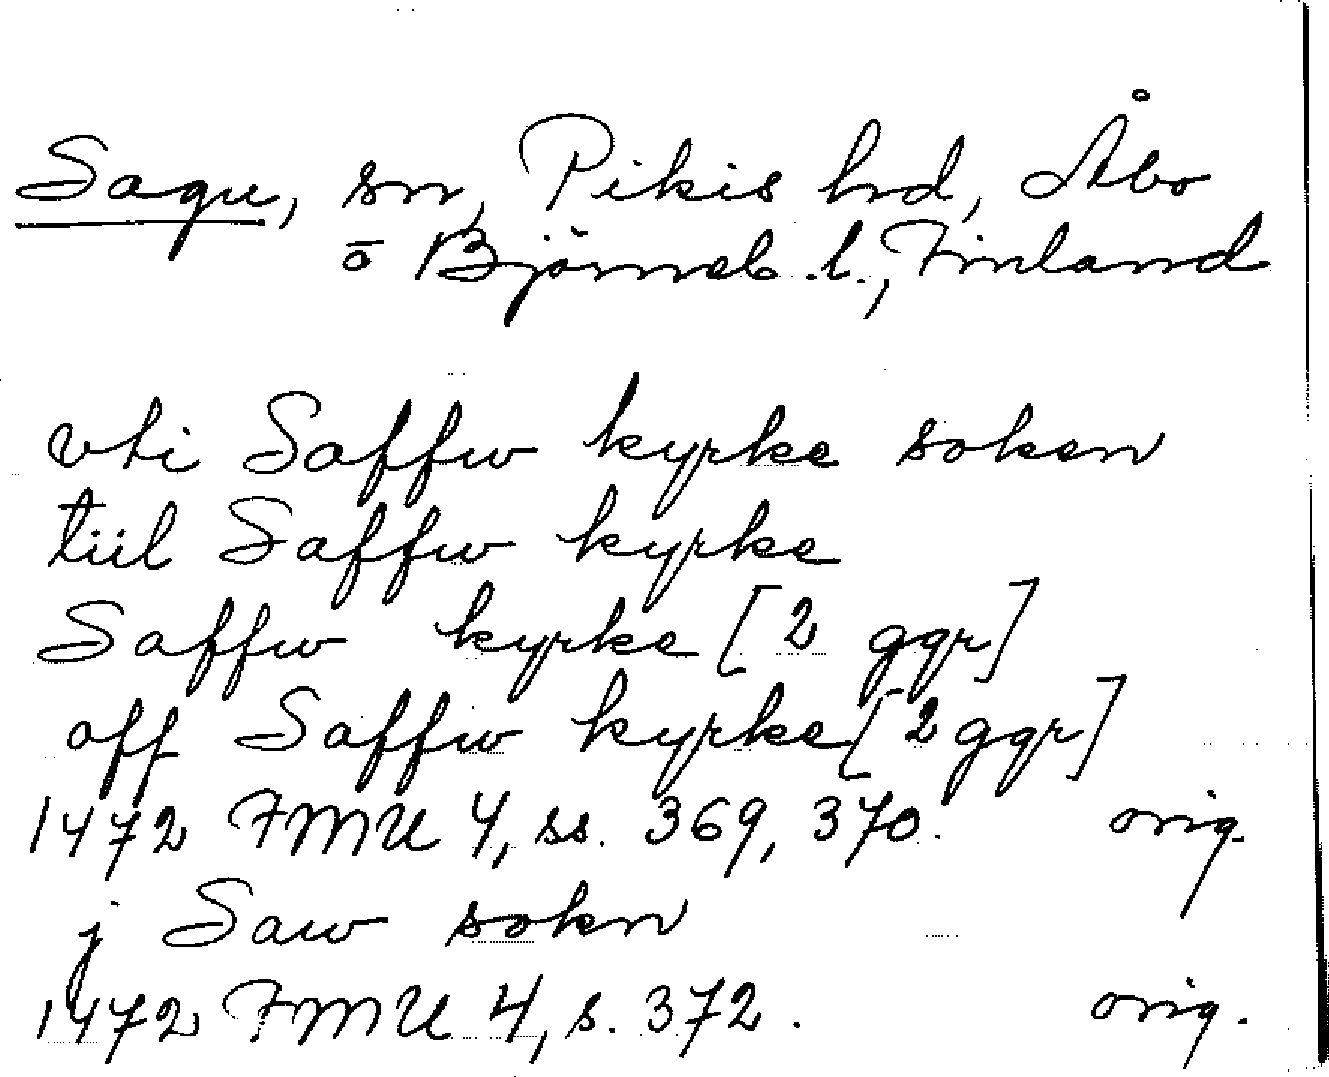 Sagu, sn, Pikis hrd, Åbo
o Björneb. l., Finland
vti Saffw kyrke soken
tiil Saffw kyrke
Saffw kyrke [2 ggr]
off Saffw kyrke [2 ggr]
1472 FMU 4, ss. 369, 370. orig.
j Saw sokn
1472 FMU 4, s. 372. orig.